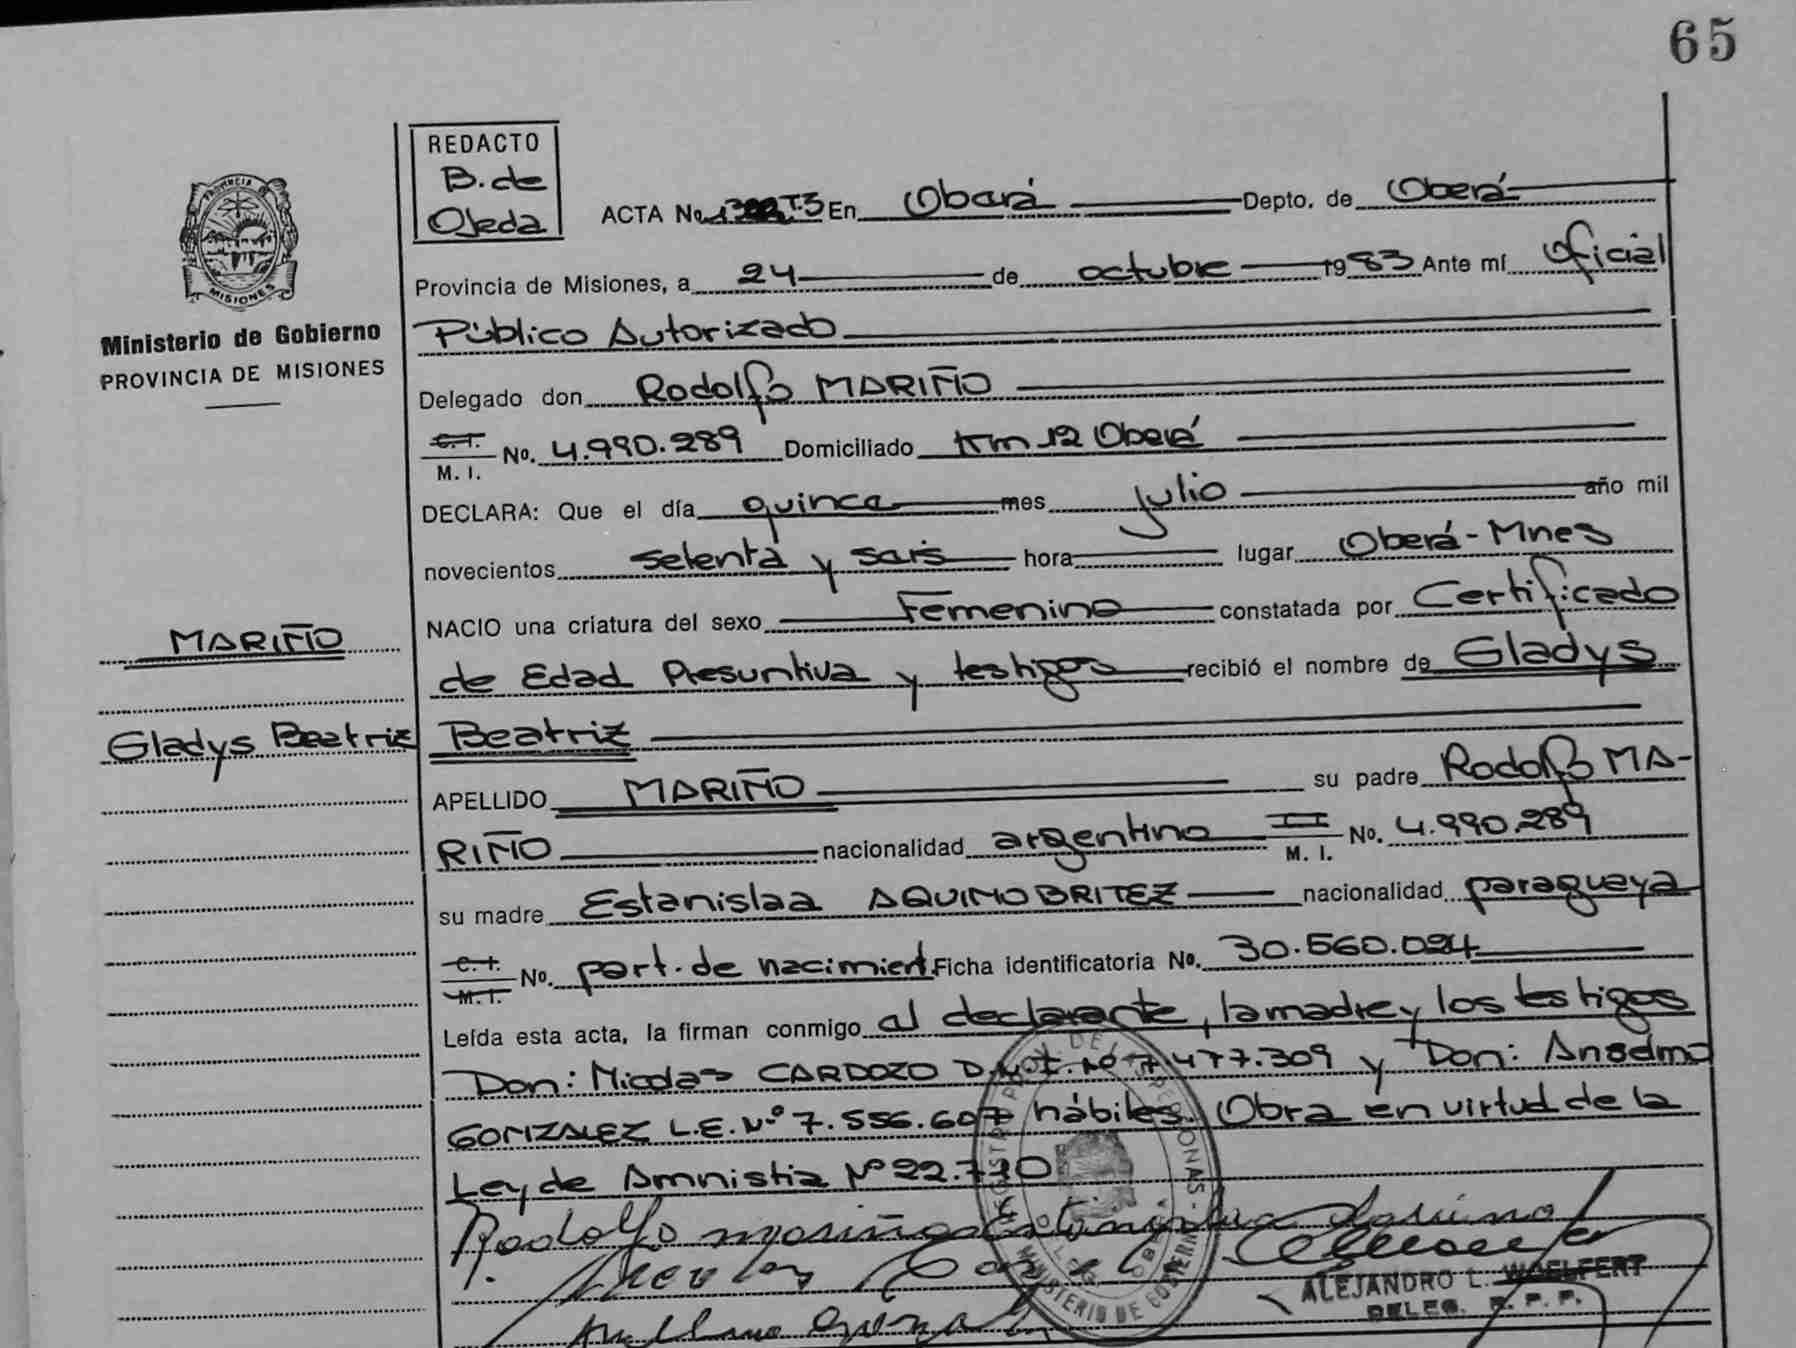 65
REDACTO
B. de
Ojeda
ACTA No. T.3 En Oberá Depto. de Oberá
Provincia de Misiones, a 24 de octubre 1983 Ante mí Oficial
Público Autorizado
PROVINCIA
MISIONES
Ministerio de Gobierno
PROVINCIA DE MISIONES
Delegado don Rodolfo MARIÑO
C.I. M. I. No. 4.990.289 Domiciliado Km 12 Oberá
DECLARA: Que el día quince mes julio año mil
novecientos setenta y seis hora lugar Oberá - Mnes
NACIO una criatura del sexo Femenino constatada por Certificado
MARIÑO
de Edad Presuntiva y testigos recibió el nombre de Gladys
Gladys Beatriz
Beatriz
APELLIDO MARIÑO su padre Rodolfo MA-
RIÑO nacionalidad argentino M. I. No. 4.990.289
su madre Estanislaa AQUINO BRITEZ nacionalidad paraguaya
C. I. M. I. No. part. de nacimient. Ficha identificatoria No. 30.560.024
Leída esta acta, la firman conmigo el declarante, la madre y los testigos
Don: Nicolas CARDOZO D. Nº 7.477.309 y Don: Anselmo
GONZALEZ L.E. Nº 7.556.607 hábiles. Obra en virtud de la
Ley de Amnistia Nº 22.710
Rodolfo mariño
ALEJANDRO L. WOELFERT
DELEG. R. P. P.
MINISTERIO DE GOBIERNO